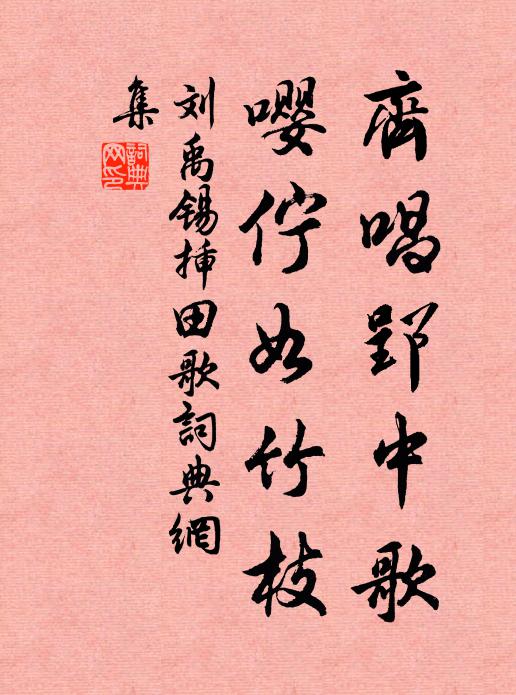 齊唱郢中歌
嚶佇如竹枝
刘禹錫插田歌詞典網
集
詞典網印